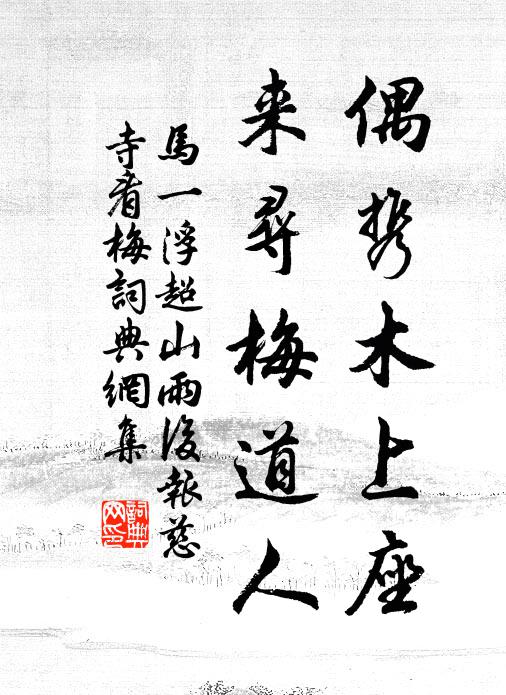 偶携木上座
来尋梅道人
馬一浮超山雨後報慈
寺看梅詞典網集
詞典网印